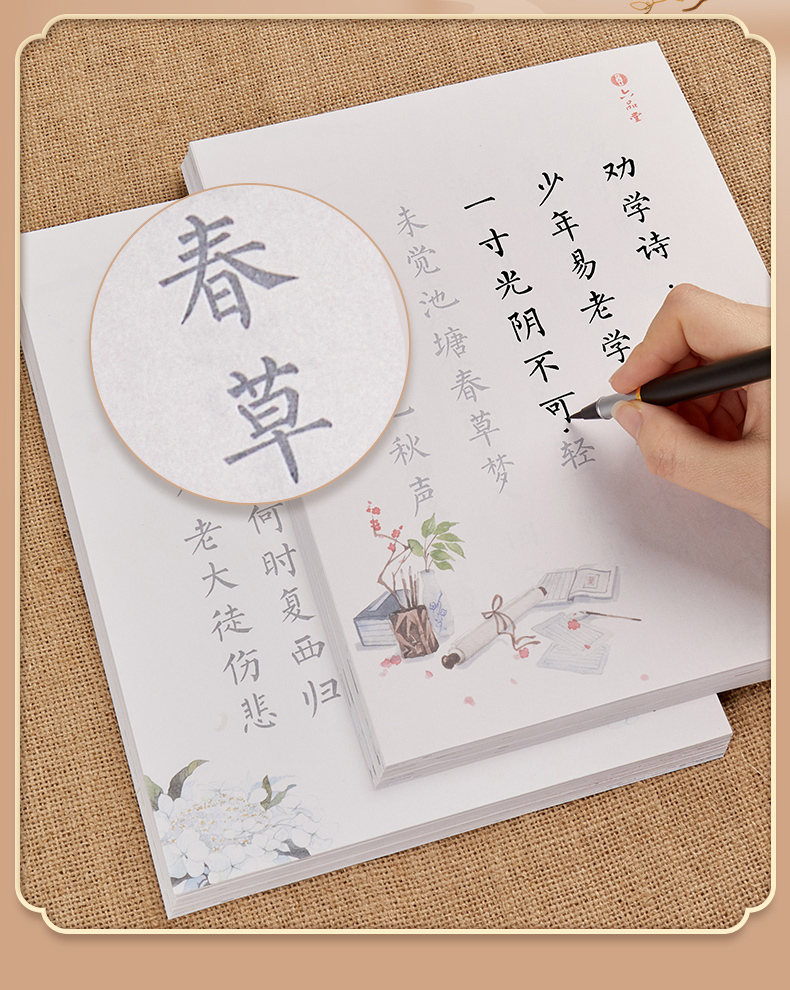 六品堂
劝学诗·
少年易老学
一寸光阴不可轻
未觉池塘春草梦
秋声
春草
何时复西归
老大徒伤悲